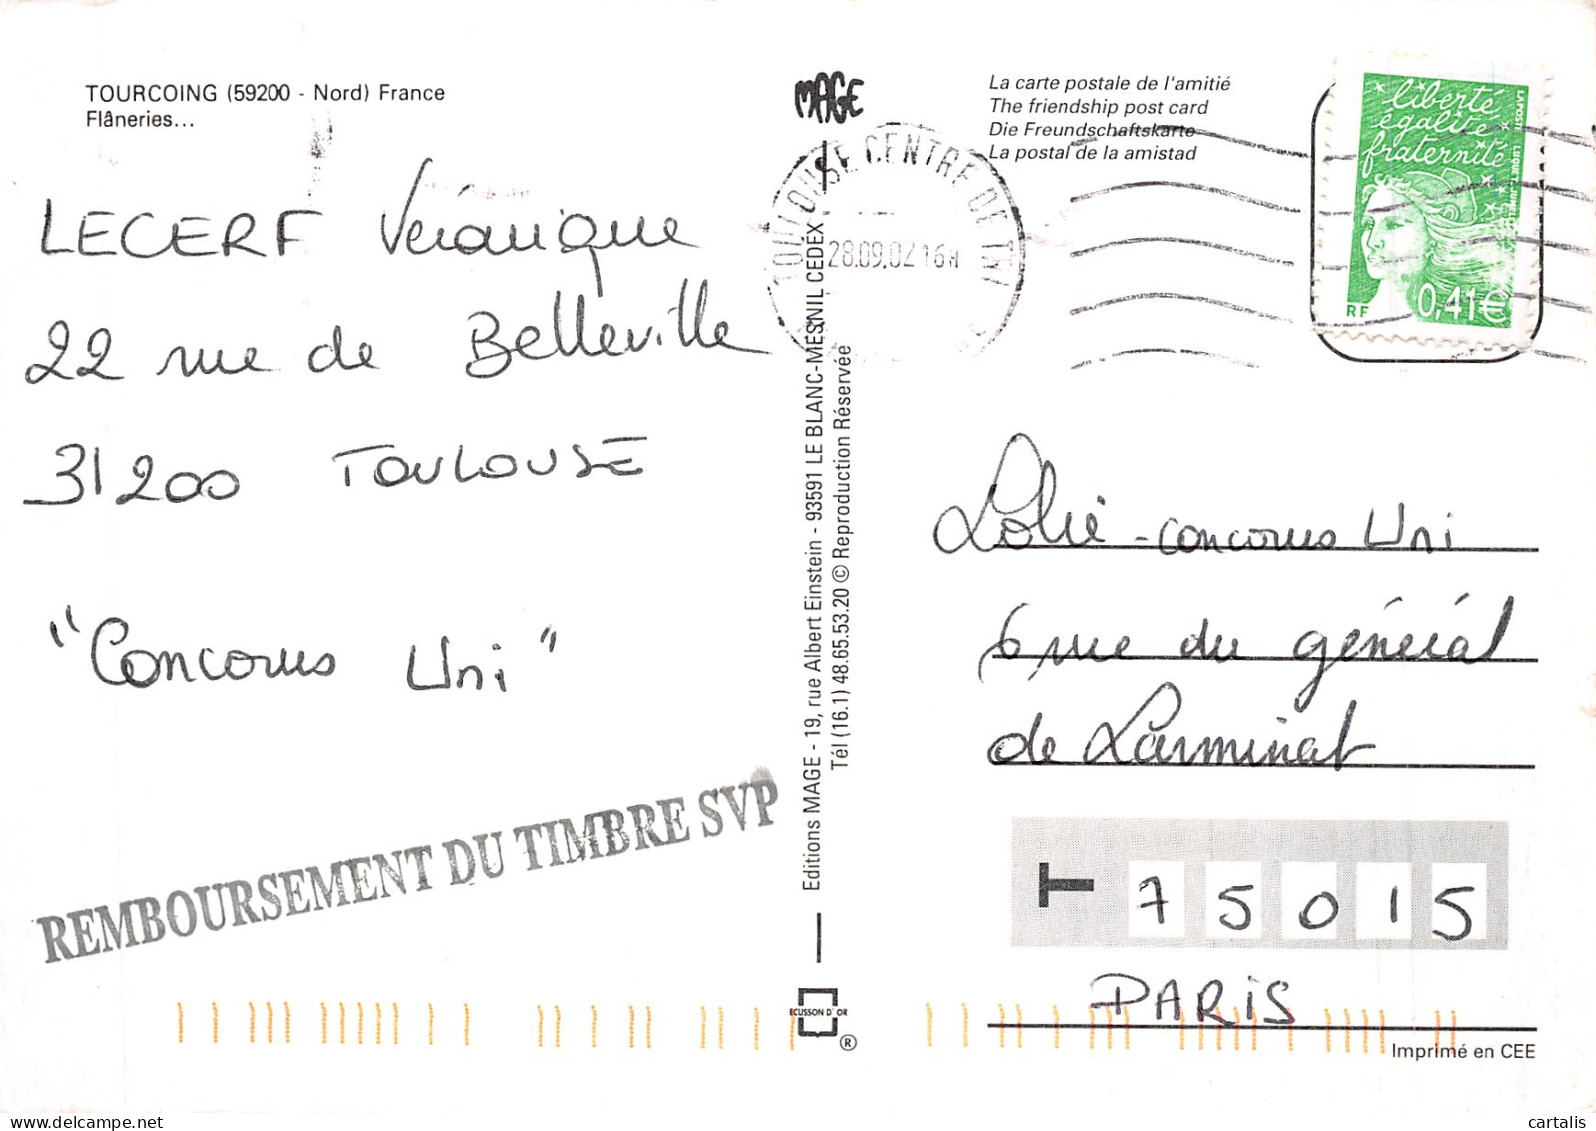 TOURCOING (59200 - Nord) France
Flâneries...
MAGE
La carte postale de l'amitié
The friendship post card
Die Freundschaftskarte
La postal de la amistad
liberté
égalité
fraternité
LAPOSTE
RF
0,41€
TOULOUSE CENTRE DE TRI
28.09.02 16H
LECERF Véronique
22 rue de Belleville
31200 TOULOUSE
"Concours Uni"
REMBOURSEMENT DU TIMBRE SVP
Editions MAGE - 19, rue Albert Einstein - 93591 LE BLANC-MESNIL CEDEX
Tél (16.1) 48.65.53.20 © Reproduction Réservée
Lolié - concours Uni
6 rue du général
de Larminat
T 75015
PARIS
ECUSSON D'OR
®
Imprimé en CEE
cartalis
delcampe.net